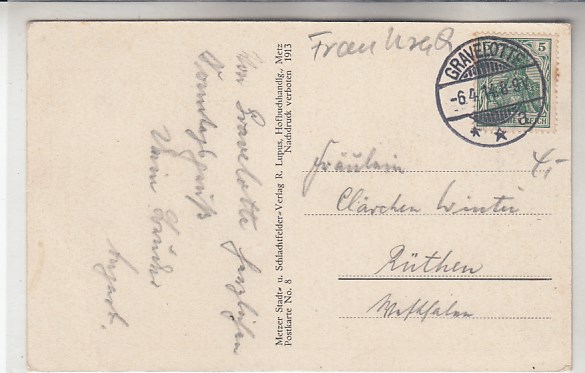 Von Gravelotte herzlichen
Sonntagsgruß
Dein Bruder
August.
Metzer Stadt- u. Schlachtfelder-Verlag R. Lupus, Hofbuchhandlg., Metz
Postkarte No. 8 Nachdruck verboten 1913
GRAVELOTTE
-6.4.14. 8-9V.
5
Fräulein
4,-
Clärchen Winter
Rüthen
Westfalen